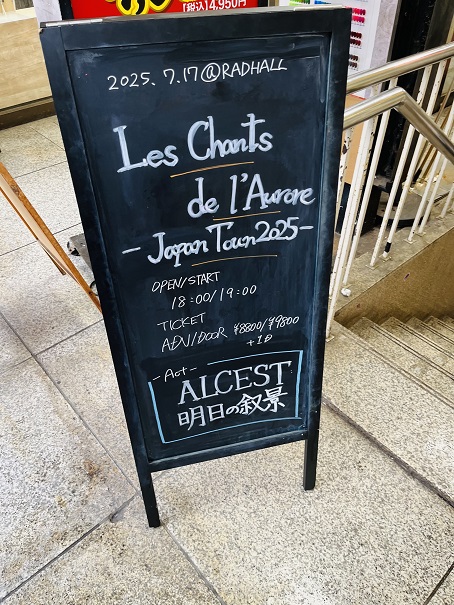 [税込]14,950円
2025.7.17@RADHALL
Les Chants
de l'Aurore
- Japan Tour2025-
OPEN/START
18:00/19:00
TICKET
ADV/DOOR ¥8800/¥9800
+1D
- Act -
ALCEST
明日の叙景